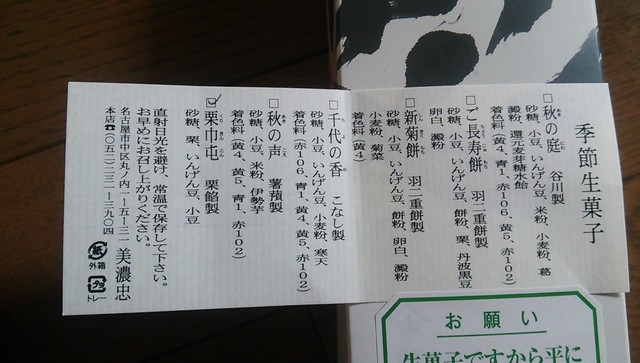 季節生菓子
□秋の庭 谷川製
砂糖、小豆、いんげん豆、米粉、小麦粉、葛
澱粉、還元麦芽糖水飴
着色料(黄4、青1、赤106、黄5、赤102)
□ご長寿餅 羽二重餅製
砂糖、小豆、いんげん豆、餅粉、栗、丹波黒豆
卵白、澱粉
□新菊餅 羽二重餅製
砂糖、小豆、いんげん豆、餅粉、卵白、澱粉
小麦粉、菊菜
着色料(黄4)
□千代の香 こなし製
砂糖、小豆、いんげん豆、小麦粉、寒天
着色料(赤106、青1、黄4、黄5、赤102)
□秋の声 薯蕷製
砂糖、小豆、米粉、伊勢芋
着色料(黄4、黄5、青1、赤102)
□栗巾屯 栗餡製
砂糖、栗、いんげん豆、小豆
直射日光を避け、常温で保存して下さい。
お早めにお召し上がりください。
名古屋市中区丸ノ内一-五-三一 美濃忠
本店☎〇五二-二三一-三九〇四
紙
外箱
プラ
トレー
お願い
生菓子ですから平に